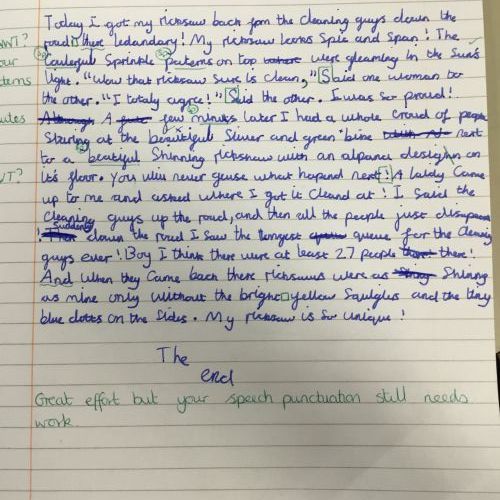 Today I got my ricksaw back from the cleaning guys down the
WWT?
road there ledandary! My ricksaw looks Spic and Span! The
our
Coulerful Sprinkle patterns on top were gleaming in the Sun's
light. "Wow that ricksaw Sure is clean," Said one woman to
the other. "I totaly agree!" Said the other. I was So proud!
A few minuts later I had a whole croud of people
Staring at the beautiful Silver and green bine next
to a beatiful Shinning rickshaw with an alpana design on
it's floor. You will never geuse what hapend next! A laldy Came
up to me and asked where I got it Cleand at! I Said the
Cleaning guys up the roud, and then all the people just
Suddenly
! down the road I Saw the longest queue for the cleaning
guys ever! Boy I think there were at least 27 people there!
And When they Came back there ricksaws were as Shining
as mine only without the bright yellow and the tiny
blue dotts on the Sides. My ricksaw is So unique!
The
end
Great effort but your speech punctuation still needs
work.